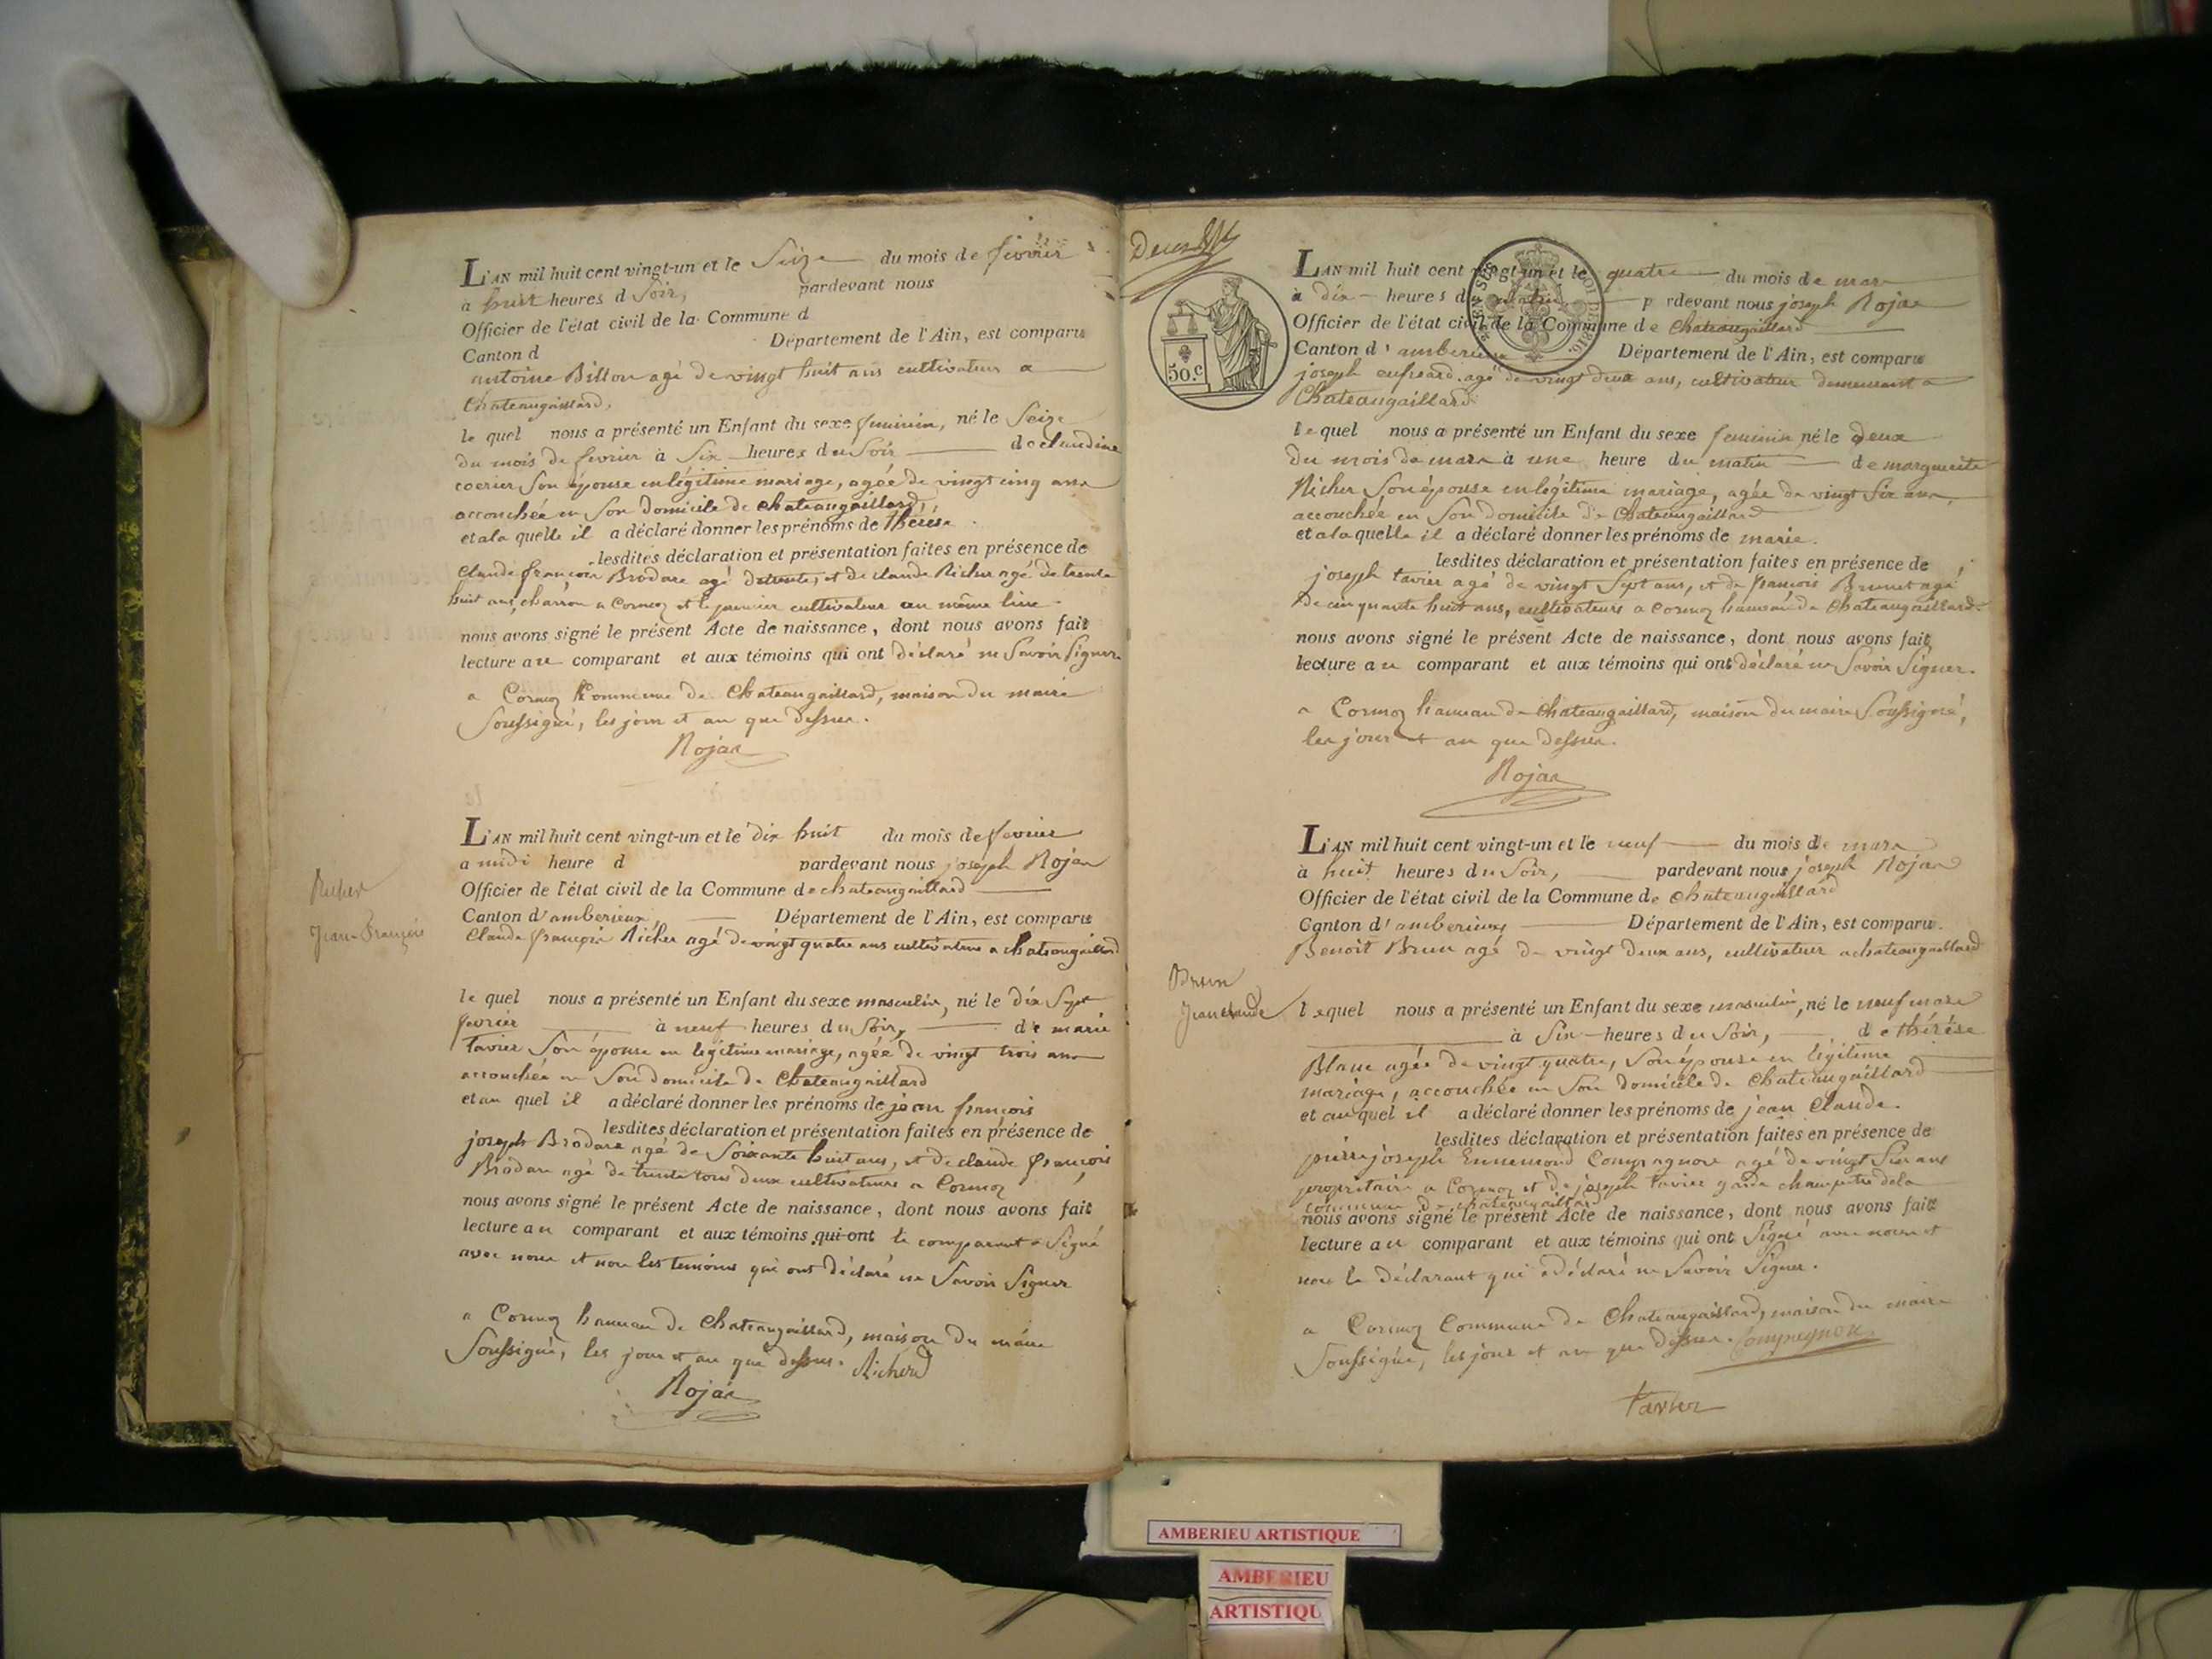 L'AN mil huit cent vingt-un et le Seize du mois de fevrier
à huit heures d Soir, pardevant nous
Officier de l'état civil de la Commune d
Canton d Département de l'Ain, est comparu
antoine Billon agé de vingt huit ans cultivateur a
Chateaugaillard,
le quel nous a présenté un Enfant du sexe feminin, né le Seize
du mois de fevrier à Six heures du Soir de claudine
Son épouse en légitime mariage, agée de vingt cinq ans
accouchée en Son domicile de chateaugaillard,
et a la quelle il a déclaré donner les prénoms de thérèse
lesdites déclaration et présentation faites en présence de
Claude françois Brodare agé de trente, et de claude Richer agé de trente
huit ans, charron a Cormoz et le premier cultivateur au même lieu
nous avons signé le présent Acte de naissance, dont nous avons fait
lecture au comparant et aux témoins qui ont déclaré ne Savoir Signer
a Cormoz Commune de Chateaugaillard, maison du maire
Soussigné, les jour et an que dessus.
Rojas
L'AN mil huit cent vingt-un et le dix huit du mois de fevrier
a midi heure d pardevant nous joséph Rojas
Officier de l'état civil de la Commune de chateaugaillard
Canton d'amberieux Département de l'Ain, est comparu
Claude françois Richer agé de vingt quatre ans cultivateur a chateaugaillard
Jean-François
le quel nous a présenté un Enfant du sexe masculin, né le dix Sept
fevrier à neuf heures du Soir, de marie
tavier Son épouse en legitime mariage, agée de vingt trois ans
accouchée en Son domicile de Chateaugaillard
et au quel il a déclaré donner les prénoms de jean françois
lesdites déclaration et présentation faites en présence de
joseph Brodare agé de Soixante huit ans, et de claude françois
Brodare agé de trente tous deux cultivateurs a Cormoz
nous avons signé le présent Acte de naissance, dont nous avons fait
lecture au comparant et aux témoins qui ont le comparant a Signé
avec nous et non les temoins qui ont déclaré ne Savoir Signer
a Cormoz hameau de Chateaugaillard, maison du maire
Soussigné, les jour et an que dessus. Richerd
Rojas
50.c
L'AN mil huit cent vingt-un et le quatre du mois de mars
à dix heures du matin p rdevant nous joseph Rojas
Officier de l'état civil de la Commune de Chateaugaillard
Canton d'amberieux Département de l'Ain, est comparu
joseph agé de vingt deux ans, cultivateur demeurant a
Chateaugaillard
le quel nous a présenté un Enfant du sexe feminin né le deux
du mois de mars à une heure du matin de marguerite
Richer Son épouse en légitime mariage, agée de vingt Six ans,
accouchée en Son domicile de Chateaugaillard
et a la quelle il a déclaré donner les prénoms de marie.
lesdites déclaration et présentation faites en présence de
joseph tavier agé de vingt Sept ans, et de françois Brunet agé
de cinquante huit ans, cultivateurs a Cormoz hameau de Chateaugaillard
nous avons signé le présent Acte de naissance, dont nous avons fait
lecture au comparant et aux témoins qui ont déclaré ne Savoir Signer.
a Cormoz hameau de Chateaugaillard, maison du maire Soussigné,
les jour et an que dessus.
Rojas
L'AN mil huit cent vingt-un et le neuf du mois de mars
à huit heures du Soir, pardevant nous joseph Rojas
Officier de l'état civil de la Commune de Chateaugaillard
Canton d'amberieux Département de l'Ain, est comparu
Benoit Brun agé de vingt deux ans, cultivateur a chateaugaillard
Brun
Jean Claude
lequel nous a présenté un Enfant du sexe masculin, né le neuf mars
à Six heures du Soir, de thérèse
Blanc agée de vingt quatre, Son épouse en légitime
mariage, accouchée en Son domicile de Chateaugaillard
et au quel il a déclaré donner les prénoms de jean Claude.
lesdites déclaration et présentation faites en présence de
pierre joseph Ennemond Compagnon agé de vingt Six ans
propriétaire a Cormoz et de joseph tavier garde champetre de la
commune de chateaugaillard
nous avons signé le présent Acte de naissance, dont nous avons fait
lecture au comparant et aux témoins qui ont Signé avec nous et
non le déclarant qui a déclaré ne Savoir Signer.
a Cormoz Commune de Chateaugaillard, maison du maire
Soussigné, les jour et an que dessus. Compagnon
tavier
AMBERIEU ARTISTIQUE
AMBERIEU
ARTISTIQU